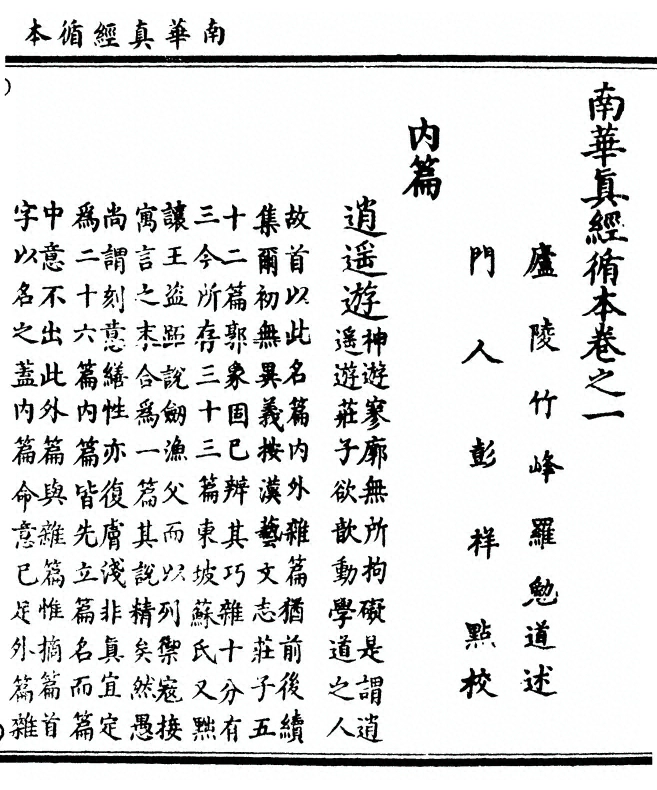 南華真經循本
南華眞經循本卷之一
廬陵竹峰羅勉道述
門人彭祥點校
內篇
逍遥遊
神遊寥廓無所拘礙是謂逍
遥遊莊子欲歆動學道之人
故首以此名篇內外雜篇猶前後續
集爾初無異義按漢藝文志莊子五
十二篇郭象固已辨其巧雜十分有
三今所存三十三篇東坡蘇氏又黜
讓王盜跖說劒漁父而以列禦寇接
寓言之末合爲一篇其說精矣然愚
尚謂刻意繕性亦復膚淺非眞宜定
爲二十六篇內篇皆先立篇名而篇
中意不出此外篇與雜篇惟摘篇首
字以名之蓋內篇命意已足外篇雜